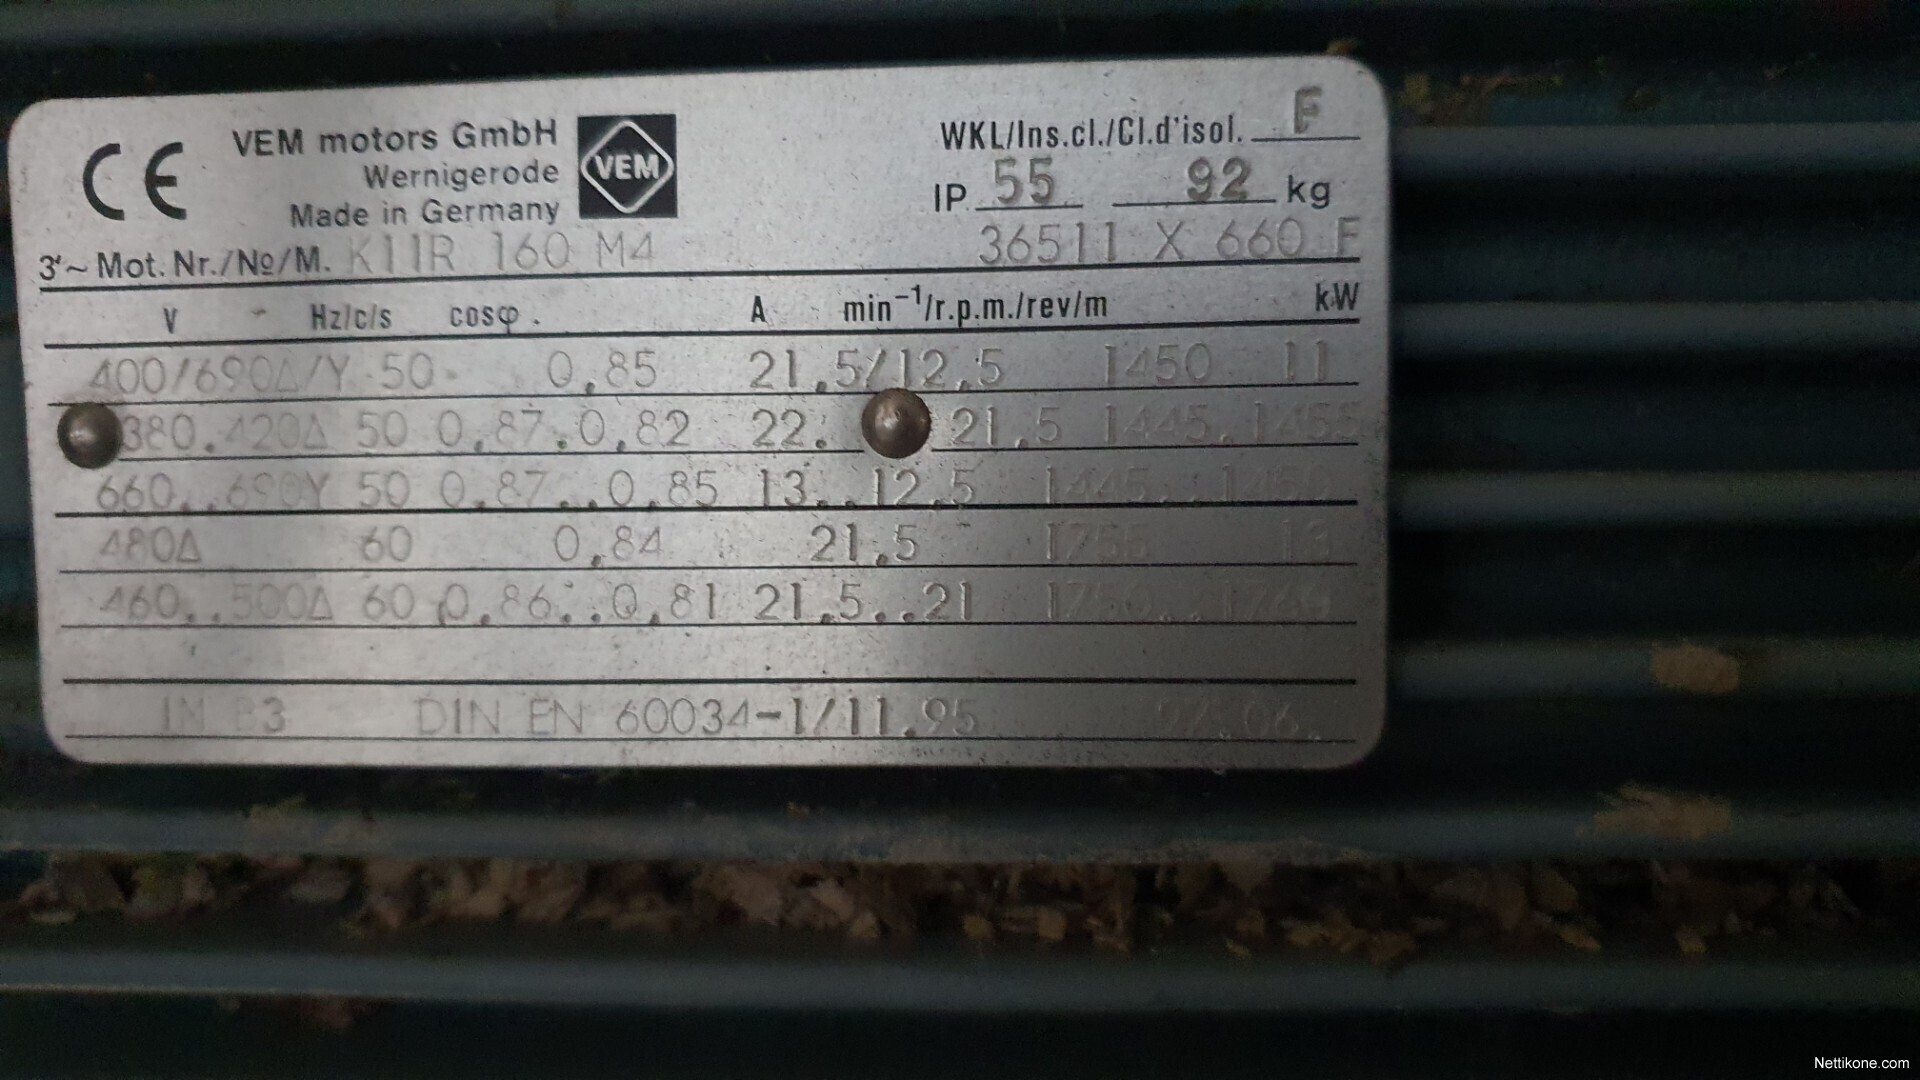 CE
VEM motors GmbH
Wernigerode
Made in Germany
VEM
WKL/Ins.cl./Cl.d'isol. F
IP 55 92 kg
3~ Mot. Nr./No/M. K11R 160 M4 36511 X 660 F
V Hz/c/s cosφ A min⁻¹/r.p.m./rev/m kW
400/690Δ/Y 50 0,85 21,5/12,5 1450 11
380. 420Δ 50 0,87.0,82 22. 21,5 1445. 1455
660..690Y 50 0,87..0,85 13..12,5 1445.. 1450
480Δ 60 0,84 21,5 1755 13
460..500Δ 60 0,86..0,81 21,5..21 1750..
IM B3 DIN EN 60034-1/11.95
Nettikone.com